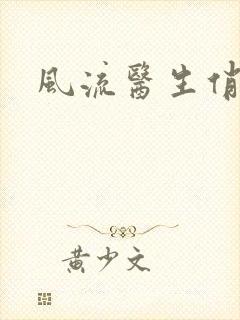 風流醫生俏
黄少文